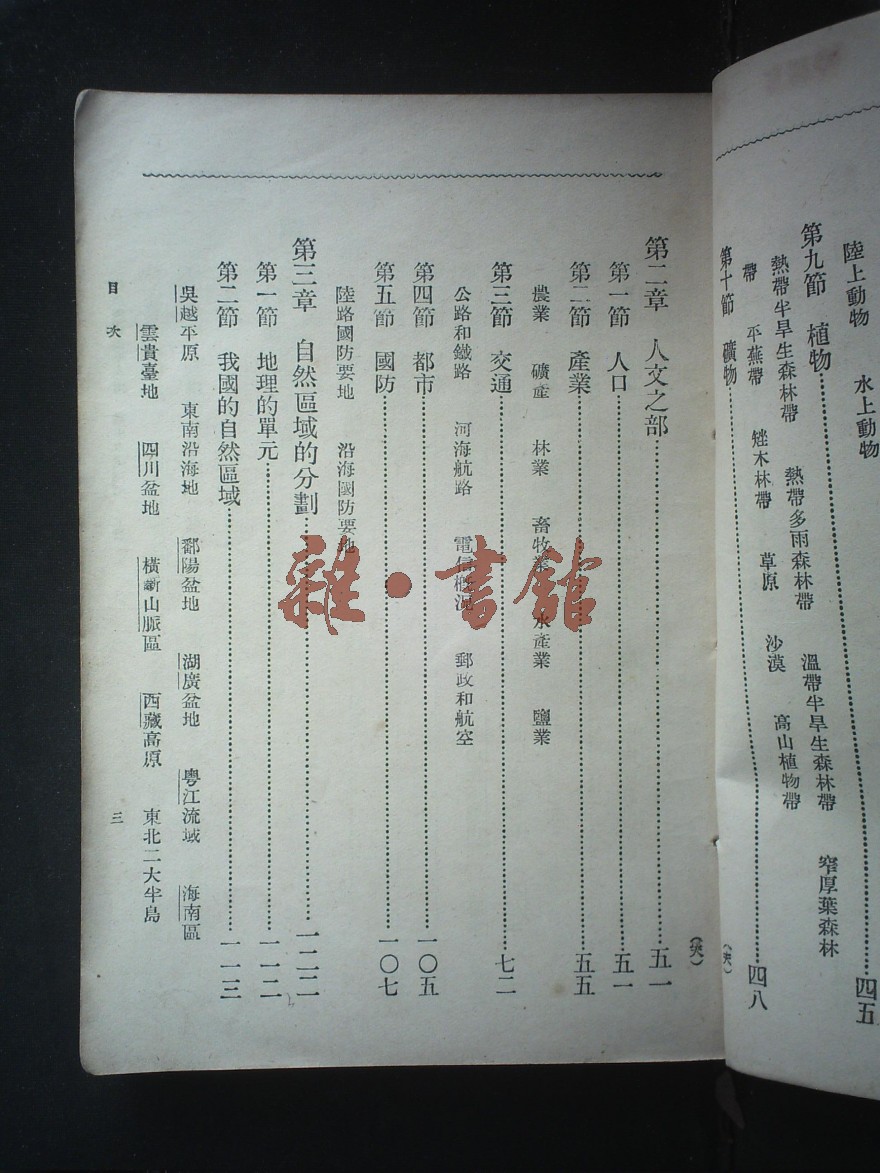 陸上動物 水上動物
第九節 植物……四五
熱帶半旱生森林帶 熱帶多雨森林帶 溫帶半旱生森林帶 窄厚葉森林
帶 平蕪帶 矬木林帶 草原 沙漠 高山植物帶
第十節 礦物……四八
第二章 人文之部……五一
第一節 人口……五一
第二節 產業……五五
農業 礦產 林業 畜牧業 水產業 鹽業
第三節 交通……七二
公路和鐵路 河海航路 電信概況 郵政和航空
第四節 都市……一〇五
第五節 國防……一〇七
陸路國防要地 沿海國防要地
第三章 自然區域的分劃……一二二
第一節 地理的單元……一一二
第二節 我國的自然區域……一一三
吳越平原 東南沿海地 鄱陽盆地 湖廣盆地 粵江流域 海南區
雲貴臺地 四川盆地 橫斷山脈區 西藏高原 東北二大半島
目次 三
雜·書館